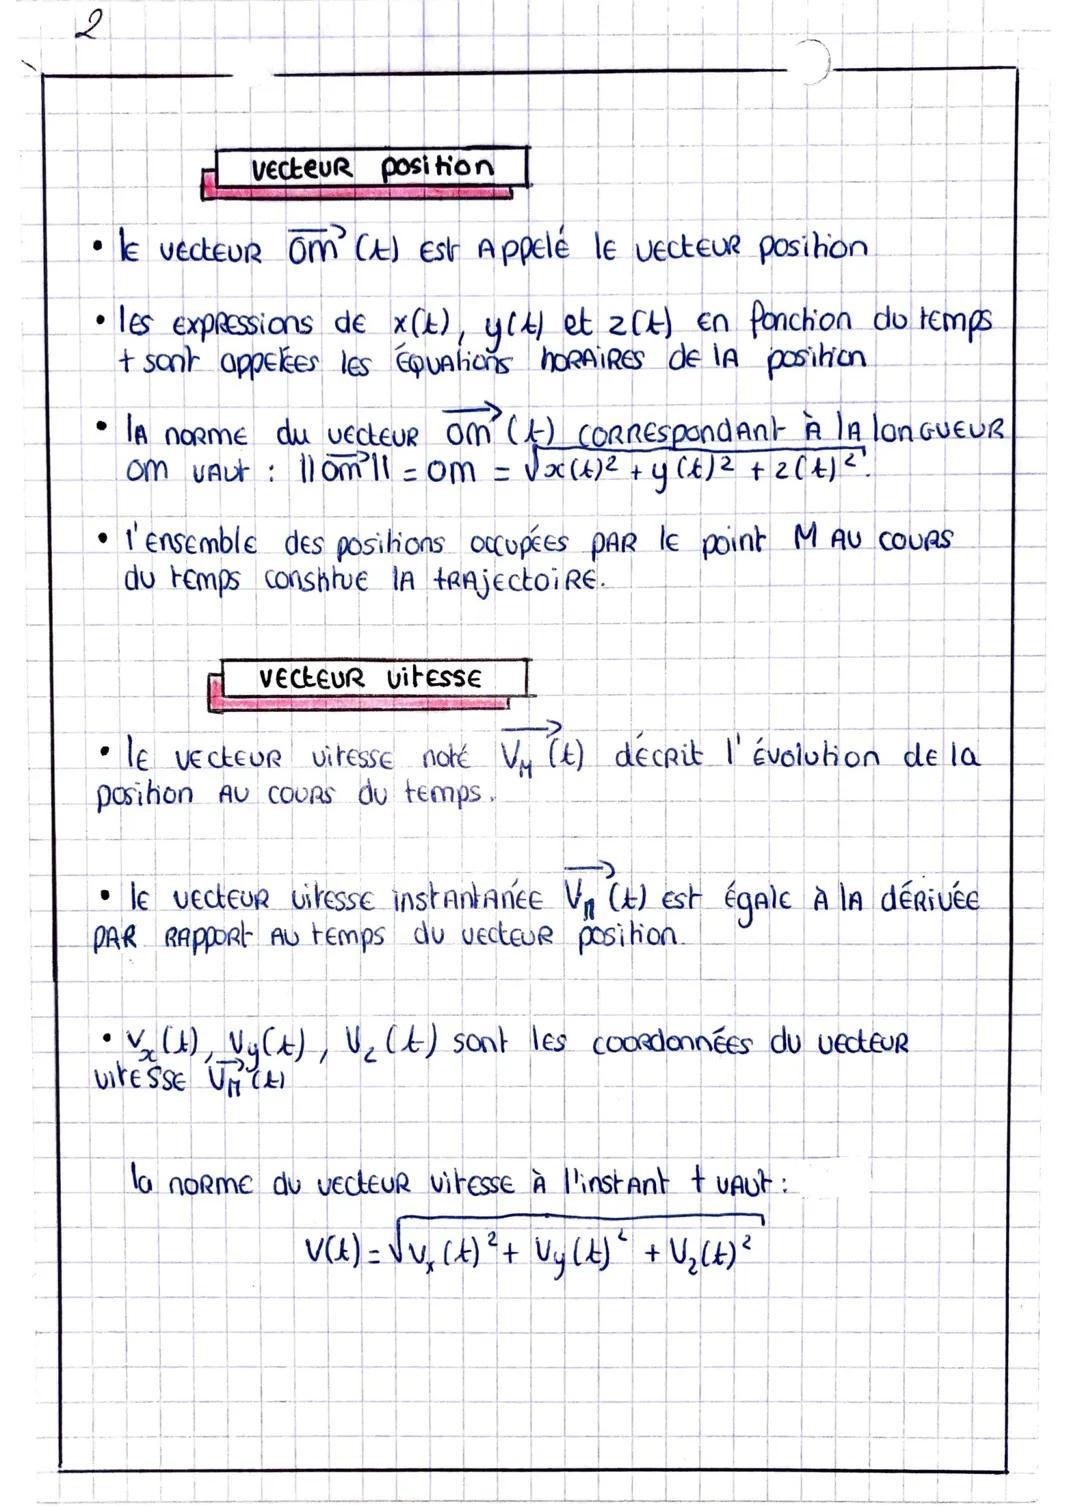 2
vecteur position
• le vecteur \overrightarrow{om}(t) est Appelé le vecteur position
• les expressions de x(t), y(t) et z(t) en fonction du temps
t sont appelées les Équations horaires de la position
• la norme du vecteur \overrightarrow{om}(t) correspondant À la longueur
om vaut : ||\overrightarrow{om}|| = om = √(x(t)² + y(t)² + z(t)²).
• l'ensemble des positions occupées par le point M au cours
du temps constitue la trajectoire.
vecteur vitesse
• le vecteur vitesse noté \overrightarrow{V_M}(t) décrit l'évolution de la
position au cours du temps.
• le vecteur vitesse instantanée \overrightarrow{V_M}(t) est égale à la dérivée
par rapport au temps du vecteur position.
• V_x(t), V_y(t), V_z(t) sont les coordonnées du vecteur
vitesse \overrightarrow{V_M}(t)
la norme du vecteur vitesse à l'instant t vaut :
V(t) = √(V_x(t)² + V_y(t)² + V_z(t)²)